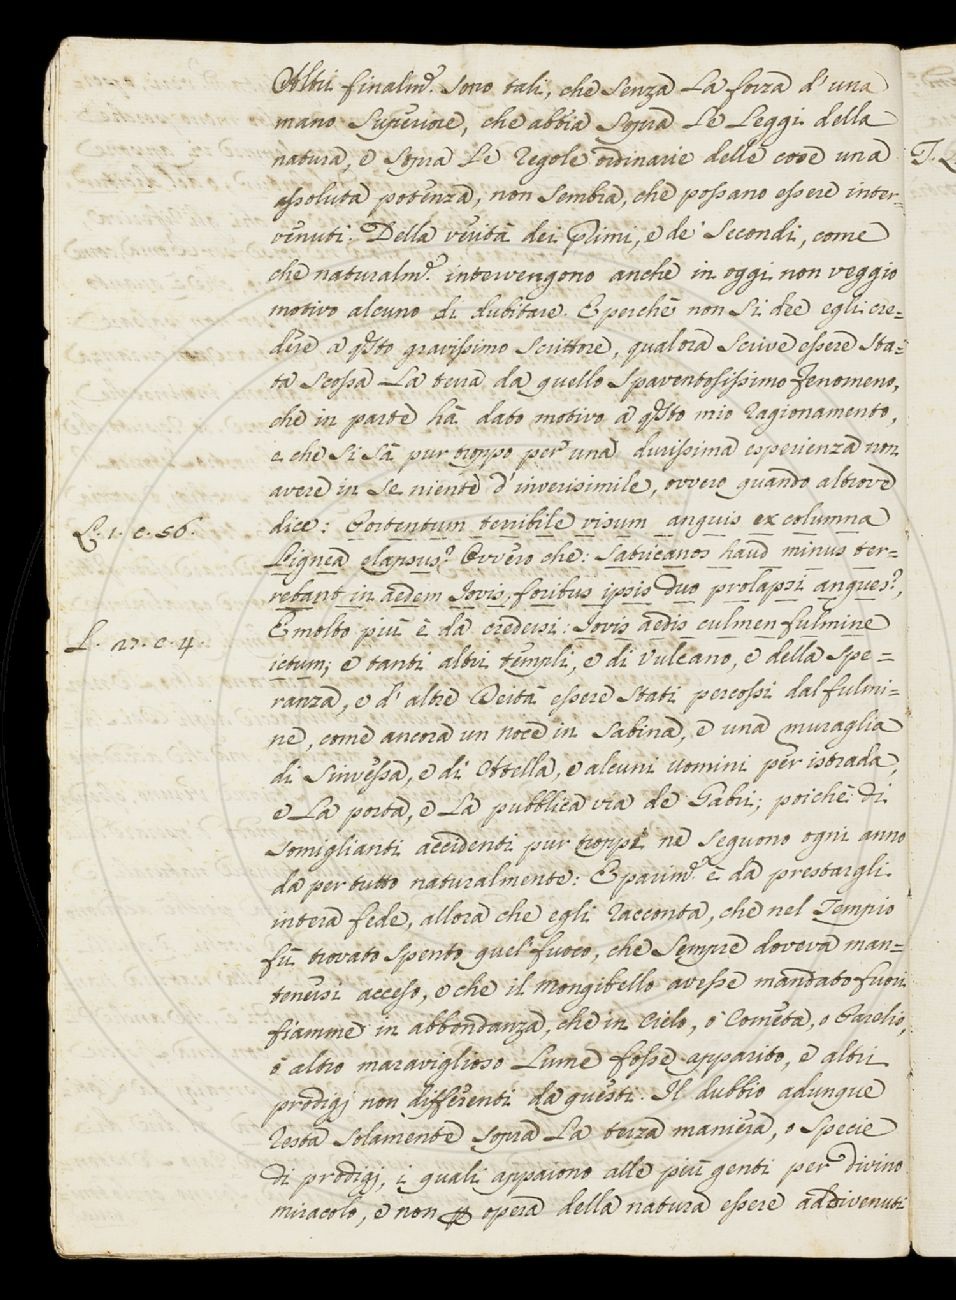 Altri finalm.e sono tali, che senza la forza d'una
mano superiore, che abbia sopra le Leggi della
natura, e sopra le regole ordinarie delle cose una
assoluta potenza, non sembra, che possano essere inter-
venuti. Della verità dei Primi, e de' Secondi, come
che naturalm.e intervengono anche in oggi non veggio
motivo alcuno di dubitare. E perchè non si dee egli cre=
dere a q.sto gravissimo scrittore, qualora scrive essere sta=
ta scossa la terra da quello spaventosissimo fenomeno,
che in parte hà dato motivo a q.sto mio ragionamento,
e che si sà pur troppo per una durissima esperienza non
avere in se niente d'inverisimile, ovvero quando altrove
L. 1. c. 56.
dice: Portentum terribile visum anguis ex columna
Lignea elapsus? Ovvero che: Satricanos haud minus ter=
rebant in aedem Jovis, foribus ipsis duo prolapsi angues?,
L. 27. c. 4.
E molto più è da credersi: Jovis aedis culmen fulmine
ictum; e tanti altri templi, e di Vulcano, e della Spe=
ranza, e d'altre Deità essere stati percossi dal fulmi=
ne, come ancora un noce in Sabina, e una muraglia
di Sinvessa, e di Attella, e alcuni uomini per istrada,
e la porta, e la pubblica via de Gabii; poichè di
somiglianti accidenti pur troppi ne seguono ogni anno
da per tutto naturalmente: E parim.e è da prestargli
intera fede, allora che egli racconta, che nel Tempio
fù trovato spento quel fuoco, che sempre doveva man=
tenersi acceso, e che il Mongibello avesse mandato fuori
fiamme in abbondanza, che in Cielo, o Cometa, o Parelio,
o altro maraviglioso Lume fosse apparito, e altri
prodigj non differenti da questi. Il dubbio adunque
resta solamente sopra la terza maniera, o specie
di prodigj, i quali appaiono alle più genti per divino
miracolo, e non p opera della natura essere addivenuti